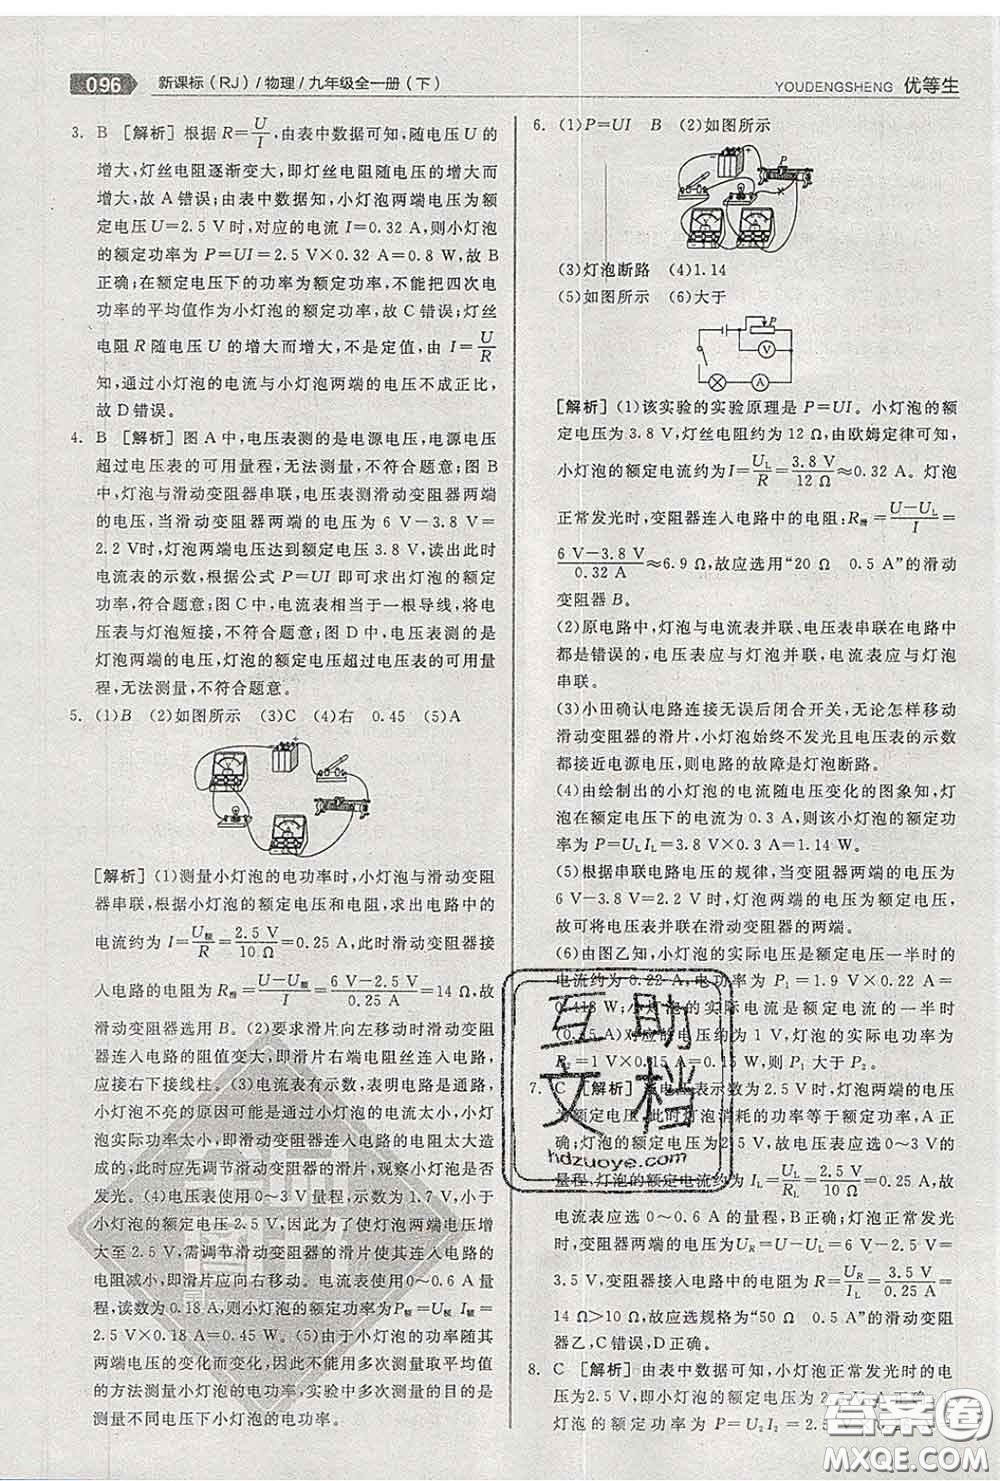 096 新课标(RJ)/物理/九年级全一册(下)
YOUDENGSHENG 优等生
3. B [解析] 根据R=U/I,由表中数据可知,随电压U的
增大,灯丝电阻逐渐变大,即灯丝电阻随电压的增大而
增大,故A错误;由表中数据知,小灯泡两端电压为额
定电压U=2.5 V时,对应的电流I=0.32 A,则小灯泡
的额定功率为P=UI=2.5 V×0.32 A=0.8 W,故B
正确;在额定电压下的功率为额定功率,不能把四次电
功率的平均值作为小灯泡的额定功率,故C错误;灯丝
电阻R随电压U的增大而增大,不是定值,由I=U/R
知,通过小灯泡的电流与小灯泡两端的电压不成正比,
故D错误。
4. B [解析] 图A中,电压表测的是电源电压,电源电压
超过电压表的可用量程,无法测量,不符合题意;图B
中,灯泡与滑动变阻器串联,电压表测滑动变阻器两端
的电压,当滑动变阻器两端的电压为6 V-3.8 V=
2.2 V时,灯泡两端电压达到额定电压3.8 V,读出此时
电流表的示数,根据公式P=UI即可求出灯泡的额定
功率,符合题意;图C中,电流表相当于一根导线,将电
压表与灯泡短接,不符合题意;图D中,电压表测的是
灯泡两端的电压,灯泡的额定电压超过电压表的可用量
程,无法测量,不符合题意。
5. (1)B (2)如图所示 (3)C (4)右 0.45 (5)A
[解析] (1)测量小灯泡的电功率时,小灯泡与滑动变阻
器串联,根据小灯泡的额定电压和电阻,求出电路中的
电流约为I=U额/R=2.5 V/10 Ω=0.25 A,此时滑动变阻器接
入电路的电阻为R滑=(U-U额)/I=(6 V-2.5 V)/0.25 A=14 Ω,故
滑动变阻器选用B。(2)要求滑片向左移动时滑动变阻
器连入电路的阻值变大,则滑片右端电阻丝连入电路,
应接右下接线柱。(3)电流表有示数,表明电路是通路,
小灯泡不亮的原因可能是电路中的电流太小,小灯泡
实际功率太小,即滑动变阻器连入电路的电阻太大造
成的,此时应先调节滑动变阻器的滑片,观察小灯泡是否
发光。(4)电压表使用0～3 V量程,示数为1.7 V,小于
小灯泡的额定电压2.5 V,因此为了使灯泡两端电压增
大至2.5 V,需调节滑动变阻器的滑片使连入电路的
电阻减小,即滑片应向右移动。电流表使用0～0.6 A量
程,读数为0.18 A,小灯泡的额定功率为P额=U额 I额=
2.5 V×0.18 A=0.45 W。(5)由于小灯泡的功率随其
两端电压的变化而变化,因此不能采用多次测量取平均值
的方法测量小灯泡的电功率,实验中多次测量的目的是
测量不同电压下小灯泡的电功率。
6. (1)P=UI B (2)如图所示
(3)灯泡断路 (4)1.14
(5)如图所示 (6)大于
P
V
A
[解析] (1)该实验的实验原理是P=UI。小灯泡的额
定电压为3.8 V,灯丝电阻约为12 Ω,由欧姆定律可知,
小灯泡的额定电流约为I=UL/R=3.8 V/12 Ω≈0.32 A。灯泡
正常发光时,变阻器连入电路中的电阻:R滑=(U-UL)/I=
(6 V-3.8 V)/0.32 A≈6.9 Ω。故应选用“20 Ω 0.5 A”的滑动
变阻器B。
(2)原电路中,灯泡与电流表并联、电压表串联在电路中
都是错误的,电压表应与灯泡并联,电流表应与灯泡
串联。
(3)小田确认电路连接无误后闭合开关,无论怎样移动
滑动变阻器的滑片,小灯泡始终不发光且电压表的示数
都接近电源电压,则电路的故障是灯泡断路。
(4)由绘制出的小灯泡的电流随电压变化的图象知,灯
泡在额定电压下的电流为0.3 A,所以该小灯泡的额定
功率P=ULIL=3.8 V×0.3 A=1.14 W。
(5)根据串联电路电压的规律,当变阻器的电压为
6 V-3.8 V=2.2 V时,灯泡的电压为额定电压,
故可将电压表并联在滑动变阻器的两端。
(6)由图乙知,小灯泡的实际电压是额定电压一半时的
电流约为0.22 A,电功率P1=1.9 V×0.22 A=
0.418 W;小灯泡的实际电流是额定电流的一半时
(0.15 A)对应的电压约为1 V,灯泡的实际电功率为
P2=1 V×0.15 A=0.15 W,所以P1大于P2。
7. C [解析] 电压表示数为2.5 V时,灯泡两端的电压
为额定电压,此时灯泡消耗的功率等于额定功率,A正
确;灯泡的额定电压为2.5 V,故电压表应选0～3 V的
量程,灯泡的额定电流约为IL=UL/RL=2.5 V/10 Ω=0.25 A,故
电流表应选0～0.6 A的量程,B正确;灯泡正常发光时,
变阻器两端的电压为UR=U-UL=6 V-2.5 V=
3.5 V,变阻器连入电路中的电阻为R=UR/IL=3.5 V/0.25 A=
14 Ω>10 Ω,故应选规格为“50 Ω 0.5 A”的滑动变阻
器乙,C错误,D正确。
8. C [解析] 由表中数据可知,小灯泡正常发光时的电
流为0.25 A,即小灯泡的额定电流为0.25 A,故小
灯泡的额定功率为P=U2I2=
互助
文档
hdzuoye.com
答案圈
MXQE.COM